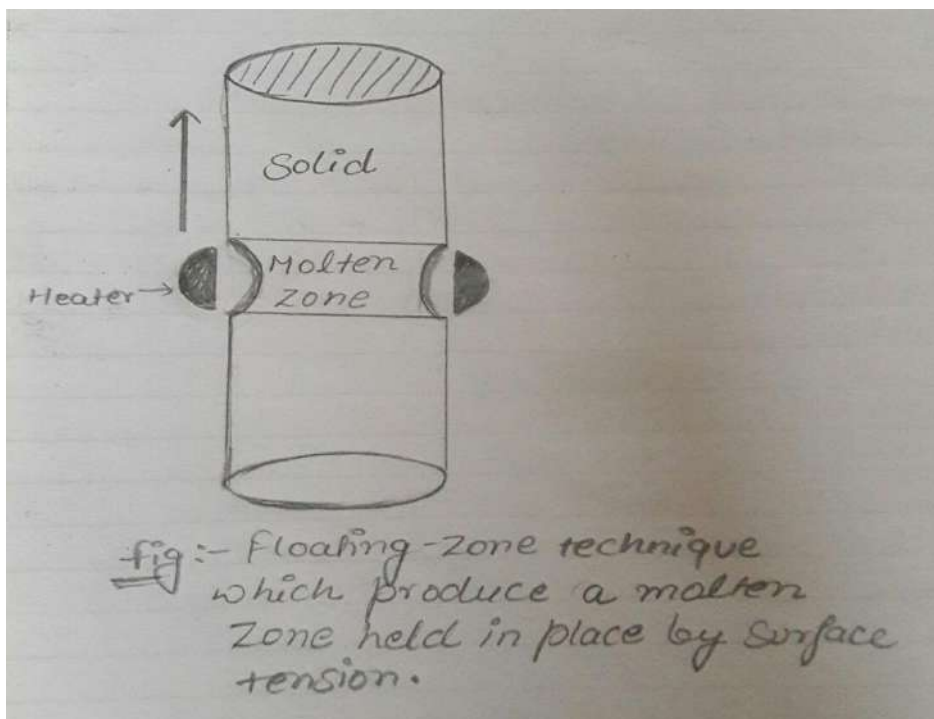 Solid
Molten
Zone
Heater
fig :- Floating-zone technique
which produce a molten
zone held in place by surface
tension.